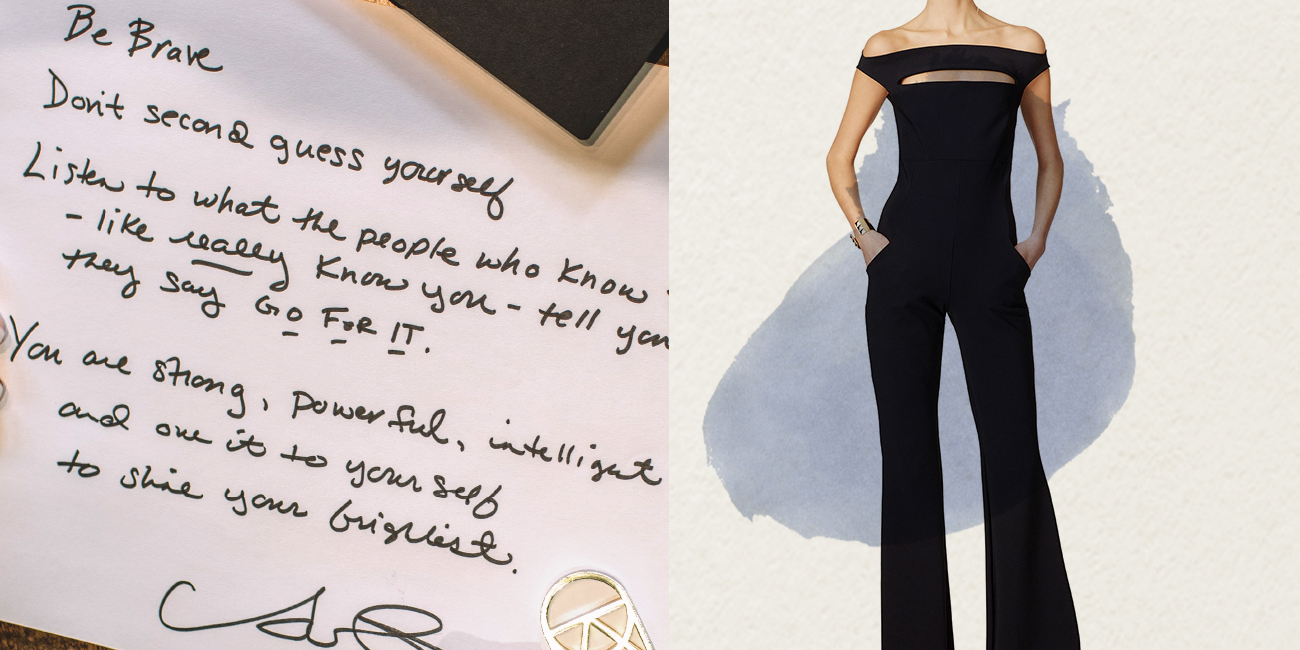 Be Brave
Don't second guess yourself
Listen to what the people who know
- like really know you - tell you
they say GO FOR IT.
You are strong, powerful, intelligent
and owe it to yourself
to shine your brightest.